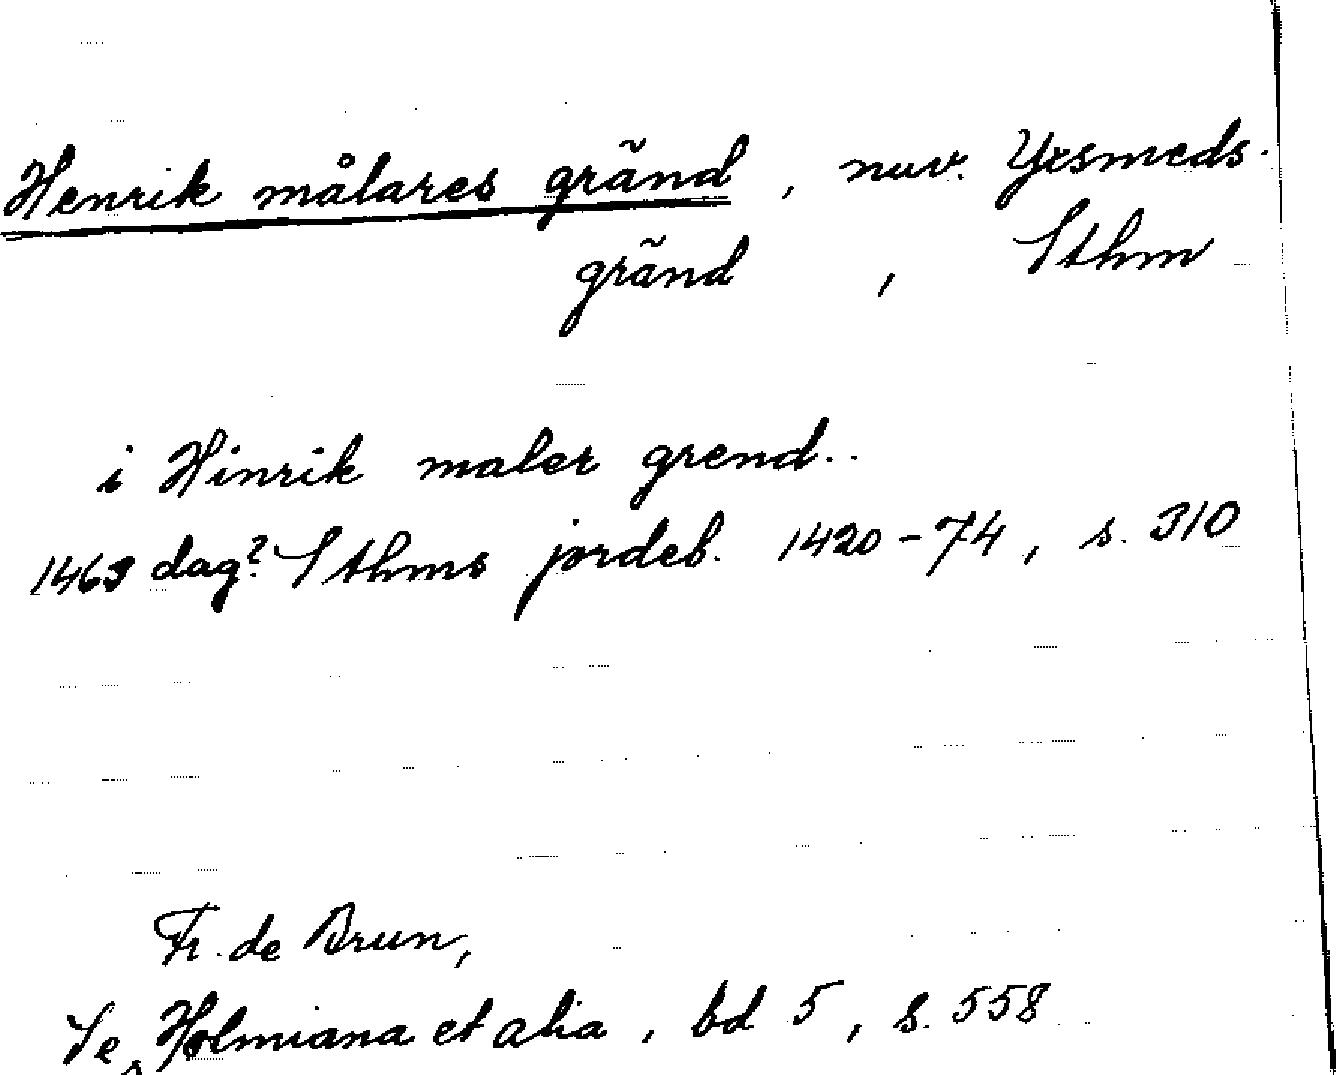 Henrik målares gränd, nuv. Yxsmeds-
gränd, Sthm
i Hinrik maler grend..
1463 dag? Sthms jordeb. 1420-74, s. 310
Fr. de Brun,
Se Holmiana et alia, bd 5, s. 558